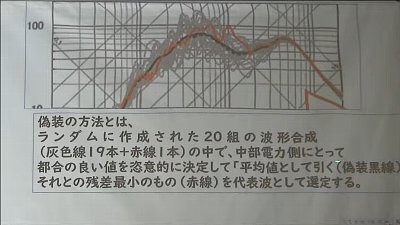 100
10
偽装の方法とは、
ランダムに作成された20組の波形合成
(灰色線19本+赤線1本)の中で、中部電力側にとって
都合の良い値を恣意的に決定して「平均値として引く(偽装黒線)
それとの残差最小のもの(赤線)を代表波として選定する。